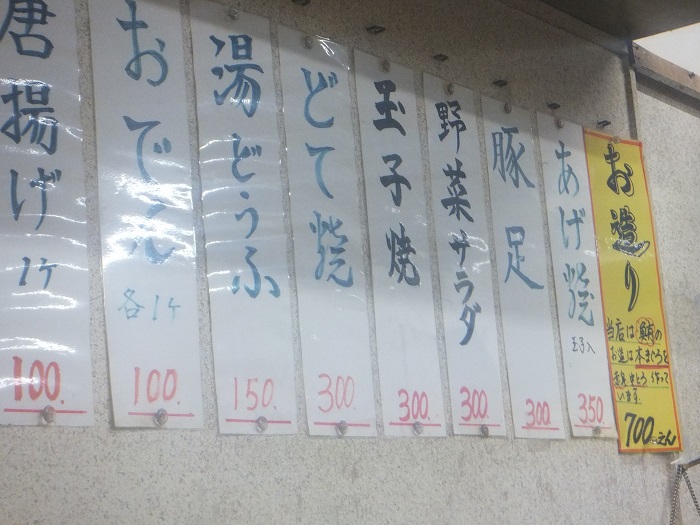 唐揚げ
1ケ
100.
おでん
各1ケ
100.
湯どうふ
150.
どて焼
300.
玉子焼
300.
野菜サラダ
300.
豚足
300.
あげ焼
玉子入
350.
お造り
当店は
お造は本まぐろを
使って
います
700えん